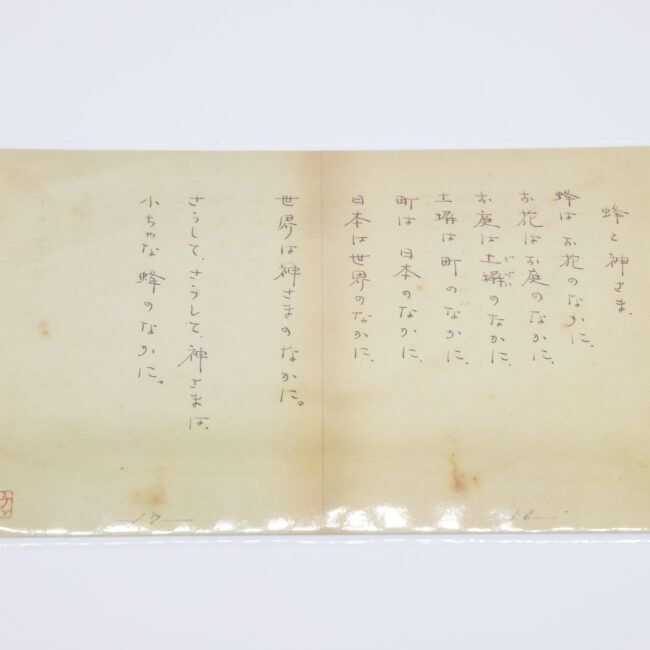 蜂と神さま、
蜂はお花のなかに、
お花はお庭のなかに、
お庭は土塀のなかに、
どべい
土塀は町のなかに、
町は日本のなかに、
日本は世界のなかに、
世界は神さまのなかに。
さうして、さうして、神さまは、
小ちゃな蜂のなかに。